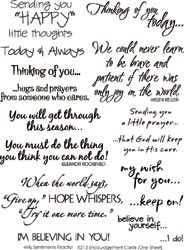 Sending you
"HAPPY"
little thoughts
Thinking of you
today...
Today & Always
Thinking of you...
...hugs and prayers
from someone who cares.
We could never learn
to be brave and
patient, if there was
only joy on the earth.
-HELEN KELLER-
You will get through
this season...
Sending you
a little prayer...
...that God will keep
you in His care.
You must do the thing
you think you can not do!
-ELEANOR ROOSEVELT-
my wish
for you...
When the world says,
"Give up," HOPE WHISPERS,
"Try it one more time."
...keep on!
believe in
yourself...
I'M BELIEVING IN YOU!
...I do!
Verly Sentiments Exactly! 3Q13 Encouragement Cards (One Sheet)